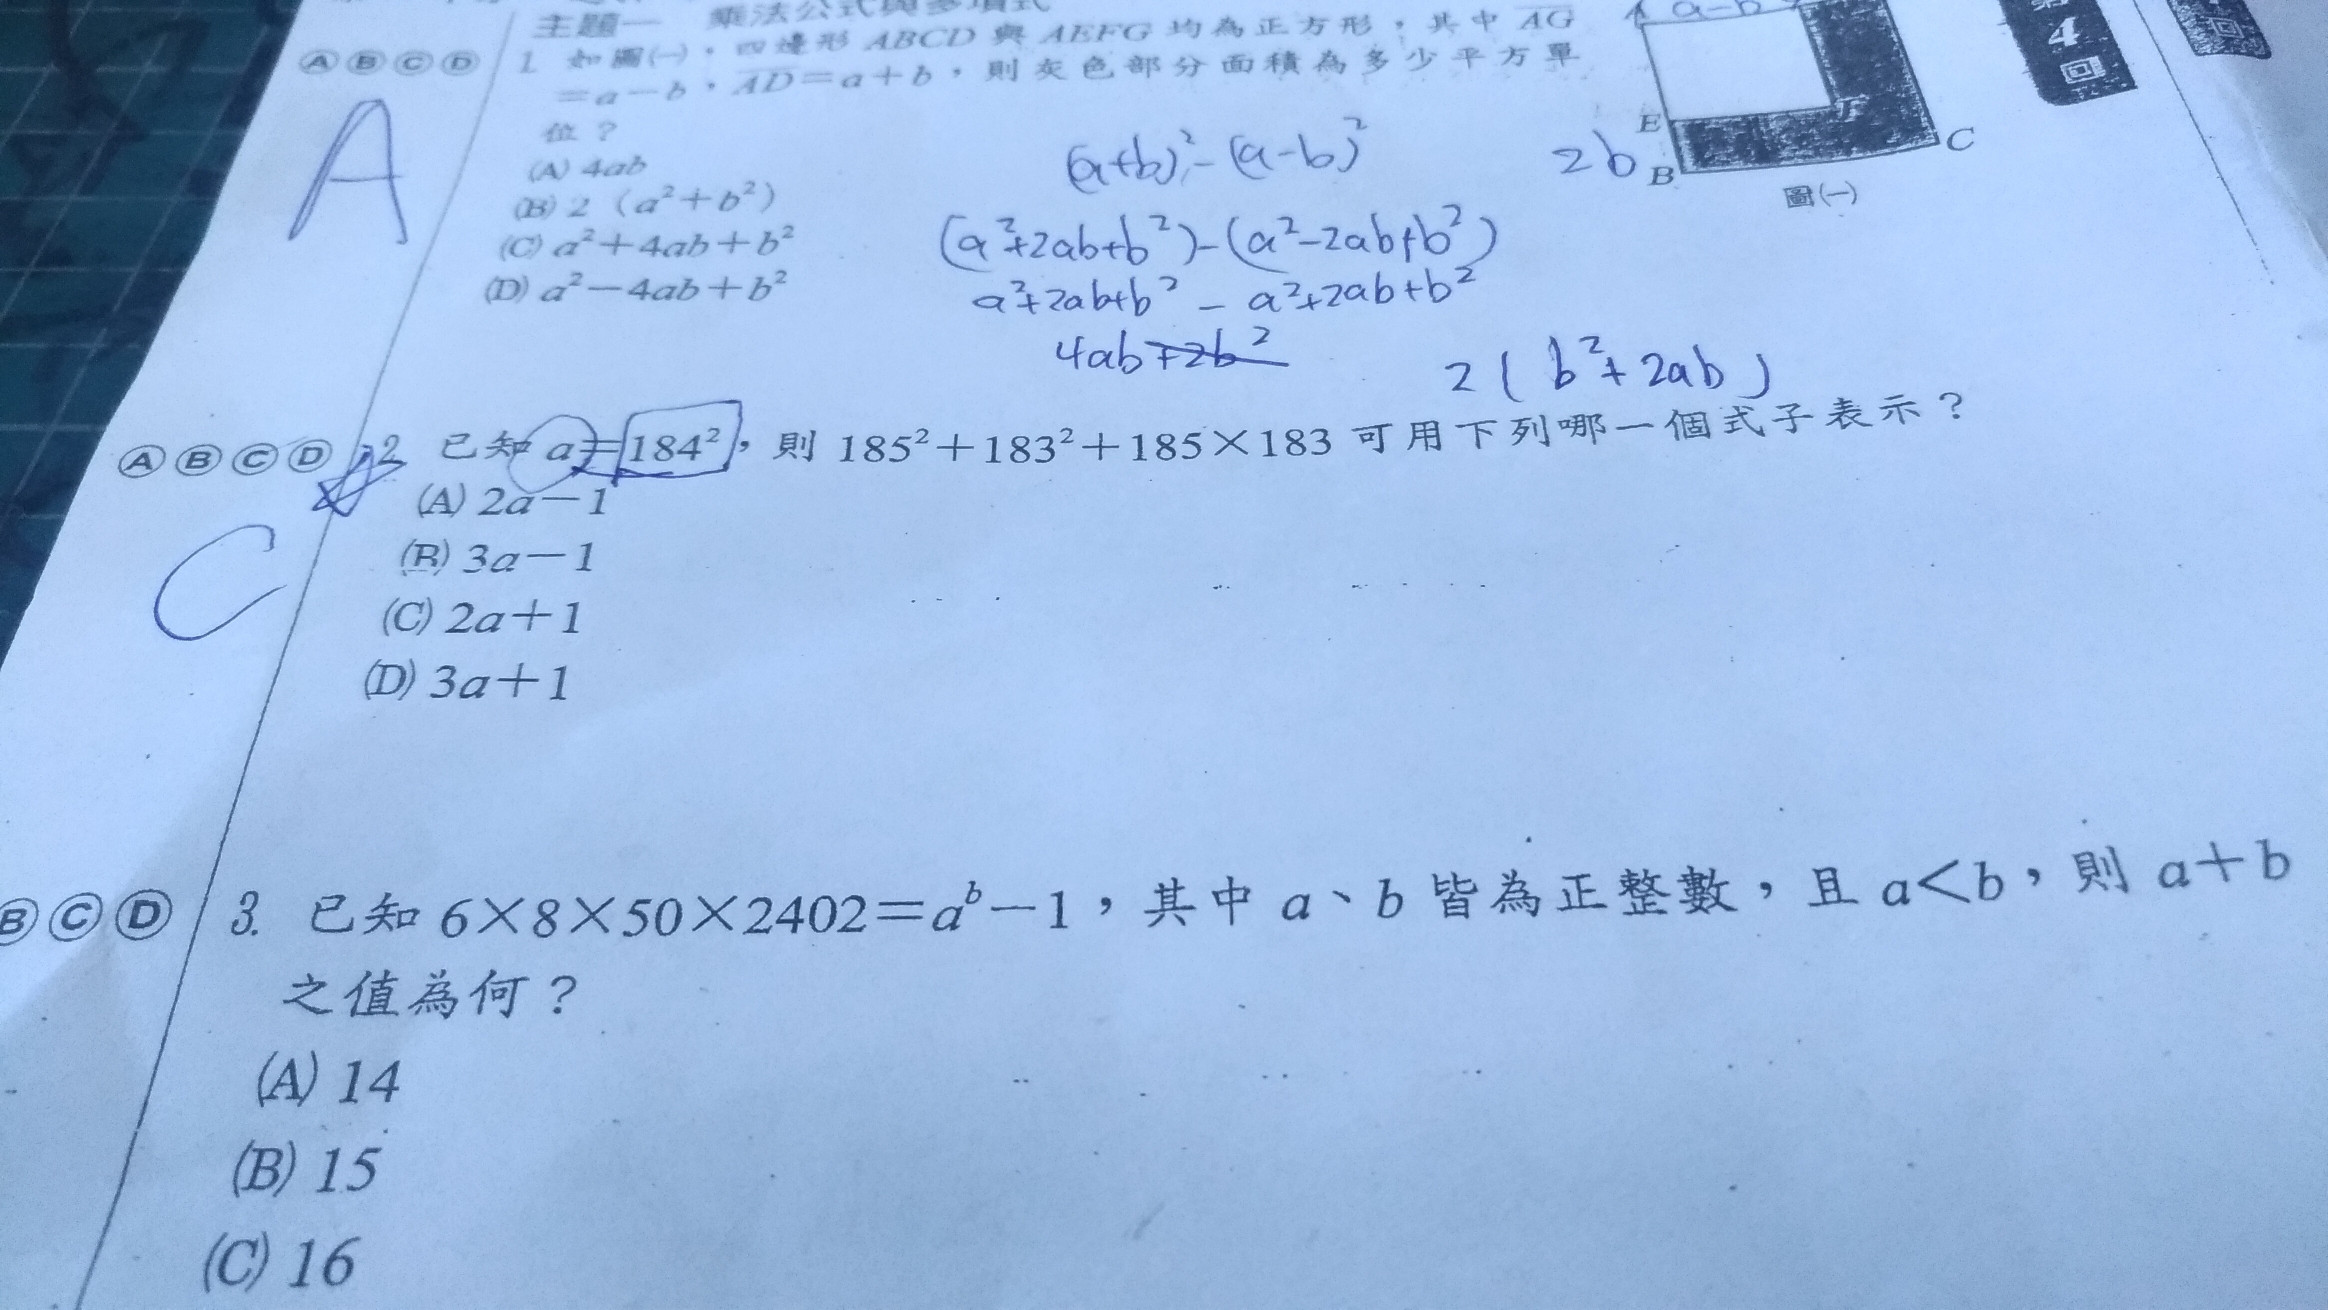 主題一 乘法公式與多項式
ⒶⒷⒸⒹ 1. 如圖(一),四邊形 ABCD 與 AEFG 均為正方形,其中 AG
=a-b,AD=a+b,則灰色部分面積為多少平方單
位?
(A) 4ab
(B) 2(a²+b²)
(C) a²+4ab+b²
(D) a²-4ab+b²
A
(a+b)²-(a-b)²
(a²+2ab+b²)-(a²-2ab+b²)
a²+2ab+b²-a²+2ab+b²
4ab+2b²
2(b²+2ab)
a-b
F
E
2b
B
C
圖(一)
4
回
ⒶⒷⒸⒹ 2. 已知 a=184²,則 185²+183²+185×183 可用下列哪一個式子表示?
(A) 2a-1
(B) 3a-1
(C) 2a+1
(D) 3a+1
C
ⒷⒸⒹ 3. 已知 6×8×50×2402=aᵇ-1,其中 a、b 皆為正整數,且 a<b,則 a+b
之值為何?
(A) 14
(B) 15
(C) 16